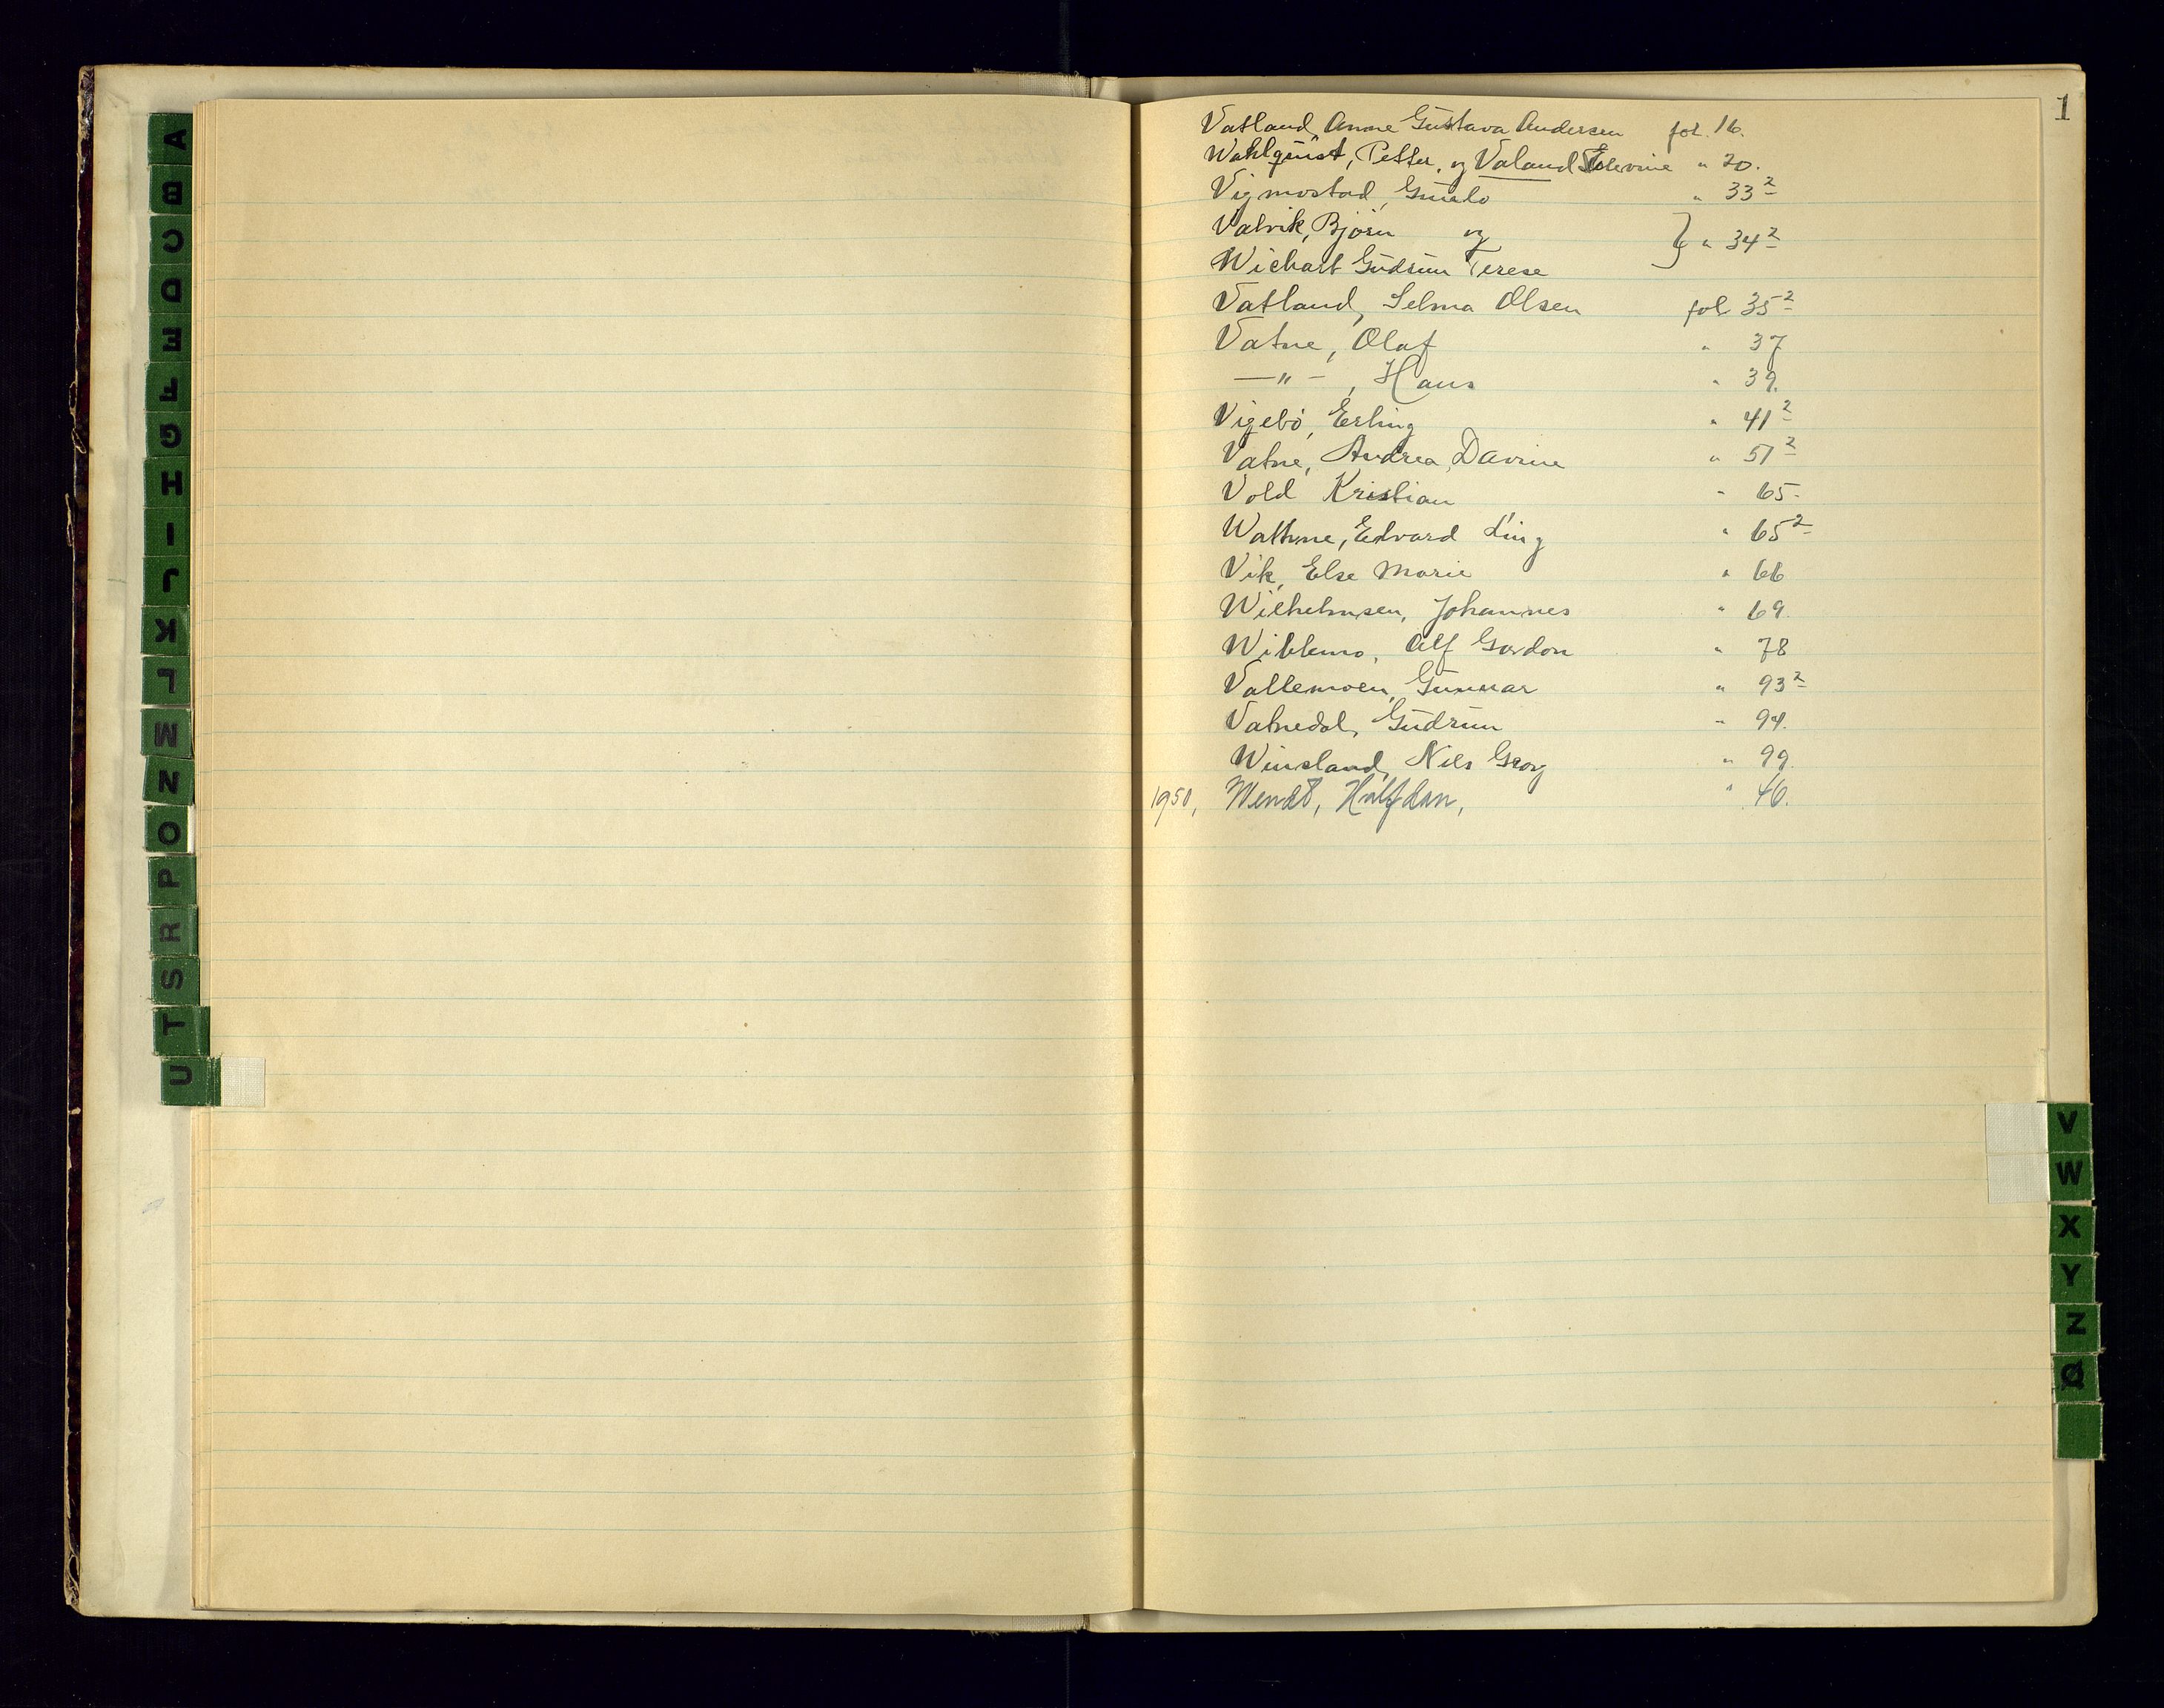 A
B
C
D
E
F
G
H
I
J
K
L
M
N
O
P
R
S
T
U
1
Vatland, Anne Gustava Andersen fol. 16.
Wahlquist, Petter, og Valand " 20.
Vigmostad, " 33²
Valvik, Bjørn og } " 34²
Wichart Gudrun Terese
Vatland, Selma Olsen fol 35²
Vatne, Olaf " 37
—"— , Hans " 39.
Vigebö, Erling " 41²
Vatne, Andrea Davine " 51²
Vold Kristian " 65.
Wathne, Edvard Ling " 65²
Vik, Else Marie " 66
Wilhelmsen, Johannes " 69.
Wiblemo, Alf Gordon " 78
Vallemoen, Gunnar " 93²
Vatnedal, Gudrun " 94.
Winsland, Nils Georg " 99.
1950, Wendt, Halfdan, " 46.
V
W
X
Y
Z
Ø